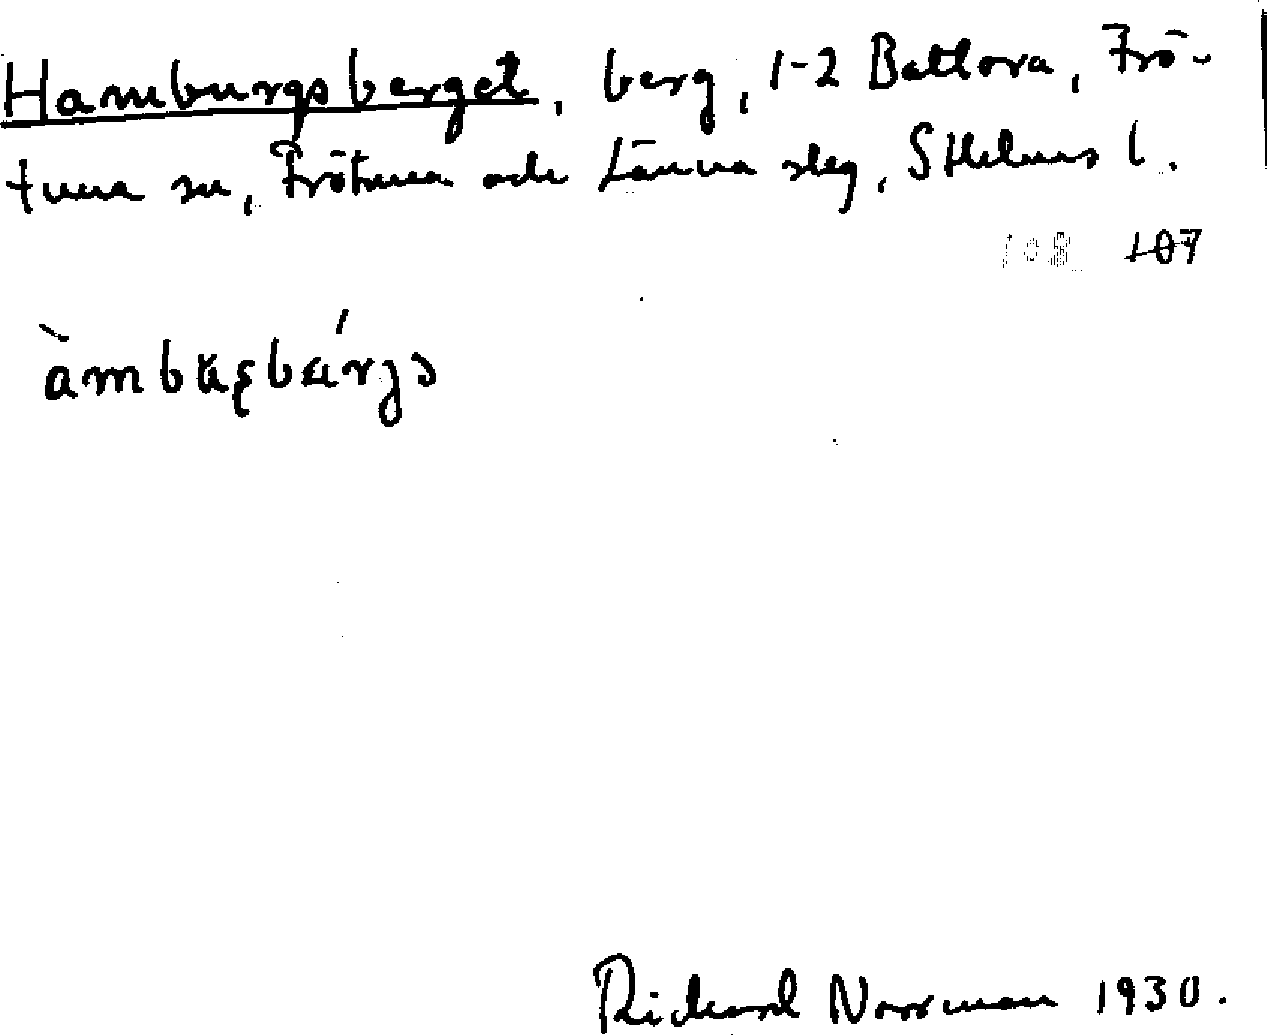 Hamburgsberget, berg, 1-2 Battora, Frö-
tuna sn, Frötuna och Länna slg, Sthlms l.
108 107
àmbäʂbárjə
Rickard Norrman 1930.